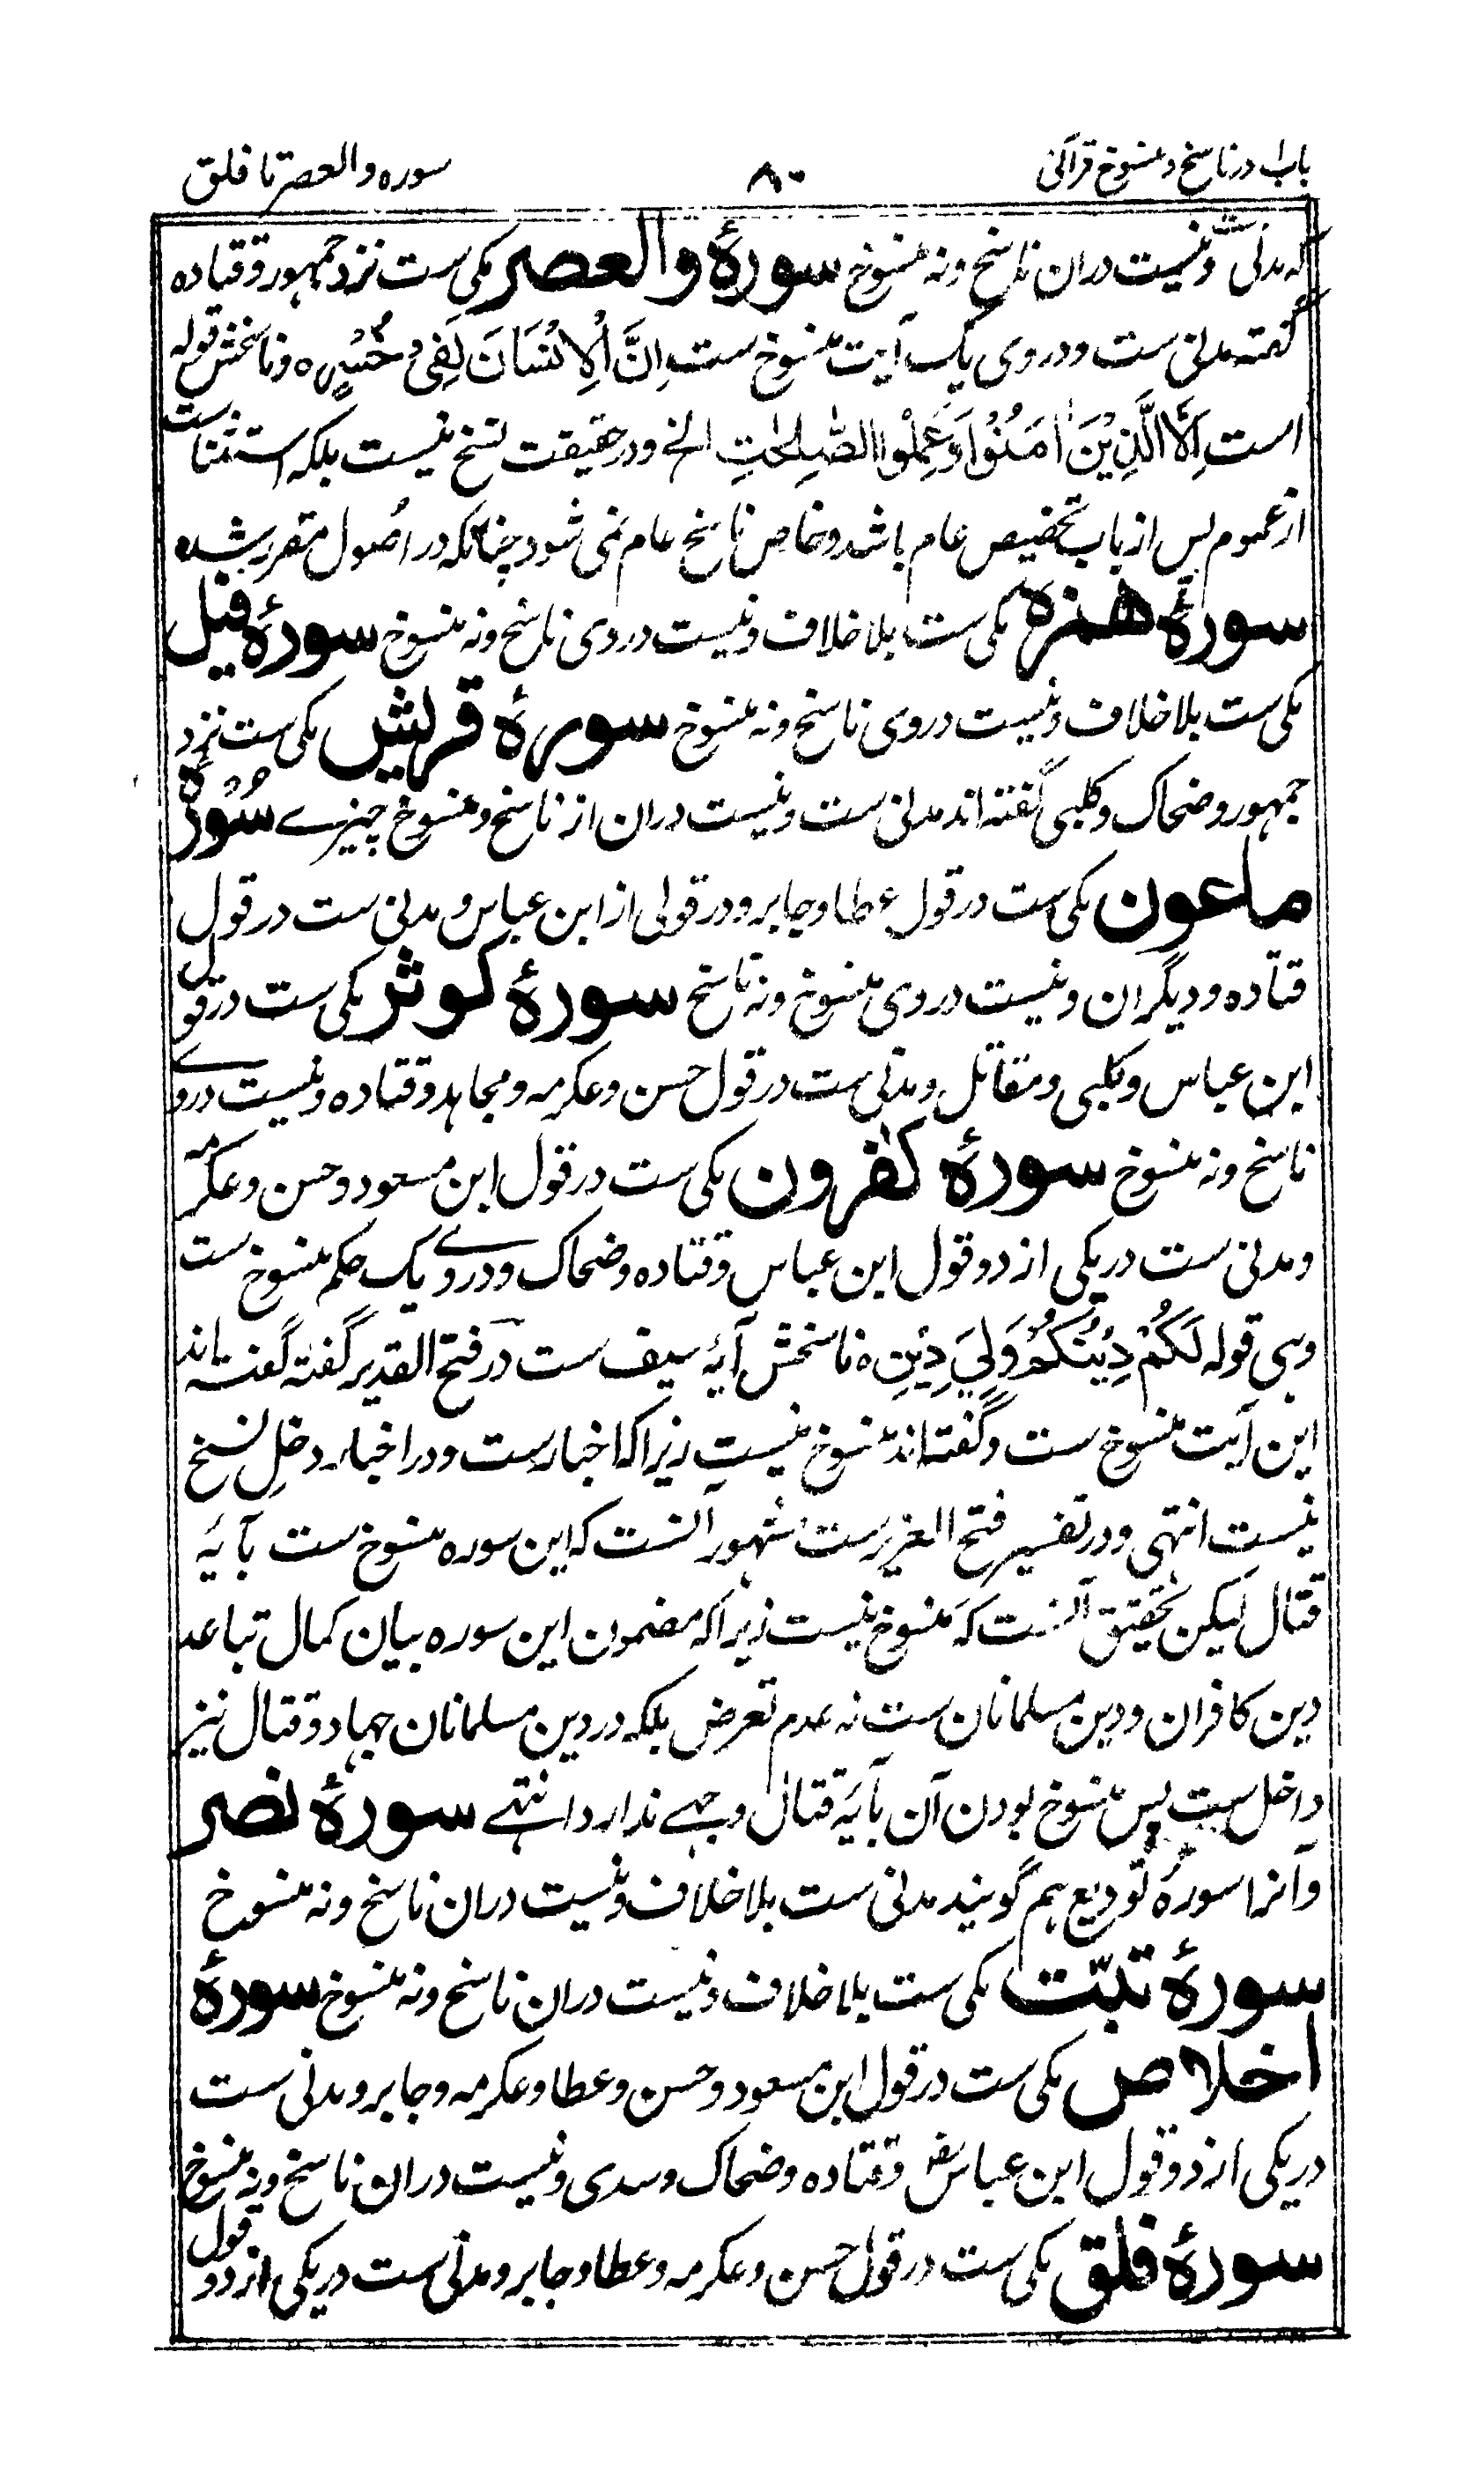 باب ا در ناسخ و منسوخ قرآنی
۸۰
سوره والعصر تا فلق
که مدنی ست و نیست دران ناسخ و نه منسوخ سورۂ والعصر مکی ست نزد جمهور و قتاده
گفته مدنی ست و در وی یک آیت منسوخ ست اِنَّ الْاِنْسَانَ لَفِیْ خُسْرٍ ه و ناسخش قوله
است اِلَّا الَّذِیْنَ اٰمَنُوْا وَعَمِلُوا الصّٰلِحٰتِ الخ و در حقیقت نسخ نیست بلکه استثنا ست
از عموم پس از باب تخصیص عام باشد و خاص ناسخ عام نمی شود چنانکه در اصُول مقرر شده
سورۂ همزه مکی ست بلا خلاف و نیست در وی ناسخ و نه منسوخ سورۂ فیل
مکی ست بلا خلاف و نیست در وی ناسخ و نه منسوخ سورۂ قریش مکی ست نزد
جمهور و ضحاک و کلبی گفته اند مدنی ست و نیست دران از ناسخ و منسوخ چیزے سُورۂ
ماعون مکی ست در قول عطا و جابر و در قولی از ابن عباس و مدنی ست در قول
قتاده و دیگران و نیست در وی منسوخ و نه ناسخ سورۂ کوثر مکی ست در قول
ابن عباس و کلبی و مقاتل و مدنی ست در قول حسن و عکرمه و مجاهد و قتاده و نیست در وے
ناسخ و نه منسوخ سورۂ کٰفرون مکی ست در قول ابن مسعود و حسن و عکرمه
و مدنی ست در یکی از دو قول ابن عباس و قتاده و ضحاک و در وے یک حکم منسوخ ست
وهی قوله لَکُمْ دِیْنُکُمْ وَلِیَ دِیْنِ ه ناسخش آیۂ سیف ست در فتح القدیر گفته گفته اند
این آیت منسوخ ست و گفته اند منسوخ نیست زیرا که اخبار ست و در اخبار دخل نسخ
نیست انتهی و در تفسیر فتح العزیز ست مشهور آنست که این سوره منسوخ ست بآیۂ
قتال لیکن تحقیق آنست که منسوخ نیست زیرا که مضمون این سوره بیان کمال تباعد
دین کافران و دین مسلمانان ست نه عدم تعرض بلکه در دین مسلمانان جهاد و قتال نیز
داخل ست پس منسوخ بودن آن بآیۂ قتال وجهے ندارد انتهے سورۂ نصر
و آنرا سورۂ تودیع هم گویند مدنی ست بلا خلاف و نیست دران ناسخ و نه منسوخ
سورۂ تبّت مکی ست بلا خلاف و نیست دران ناسخ و نه منسوخ سورۂ
اخلاص مکی ست در قول ابن مسعود و حسن و عطا و عکرمه و جابر و مدنی ست
در یکی از دو قول ابن عباسؓ و قتاده و ضحاک و سدی و نیست دران ناسخ و نه منسوخ
سورۂ فلق مکی ست در قول حسن و عکرمه و عطا و جابر و مدنی ست در یکی از دو قول